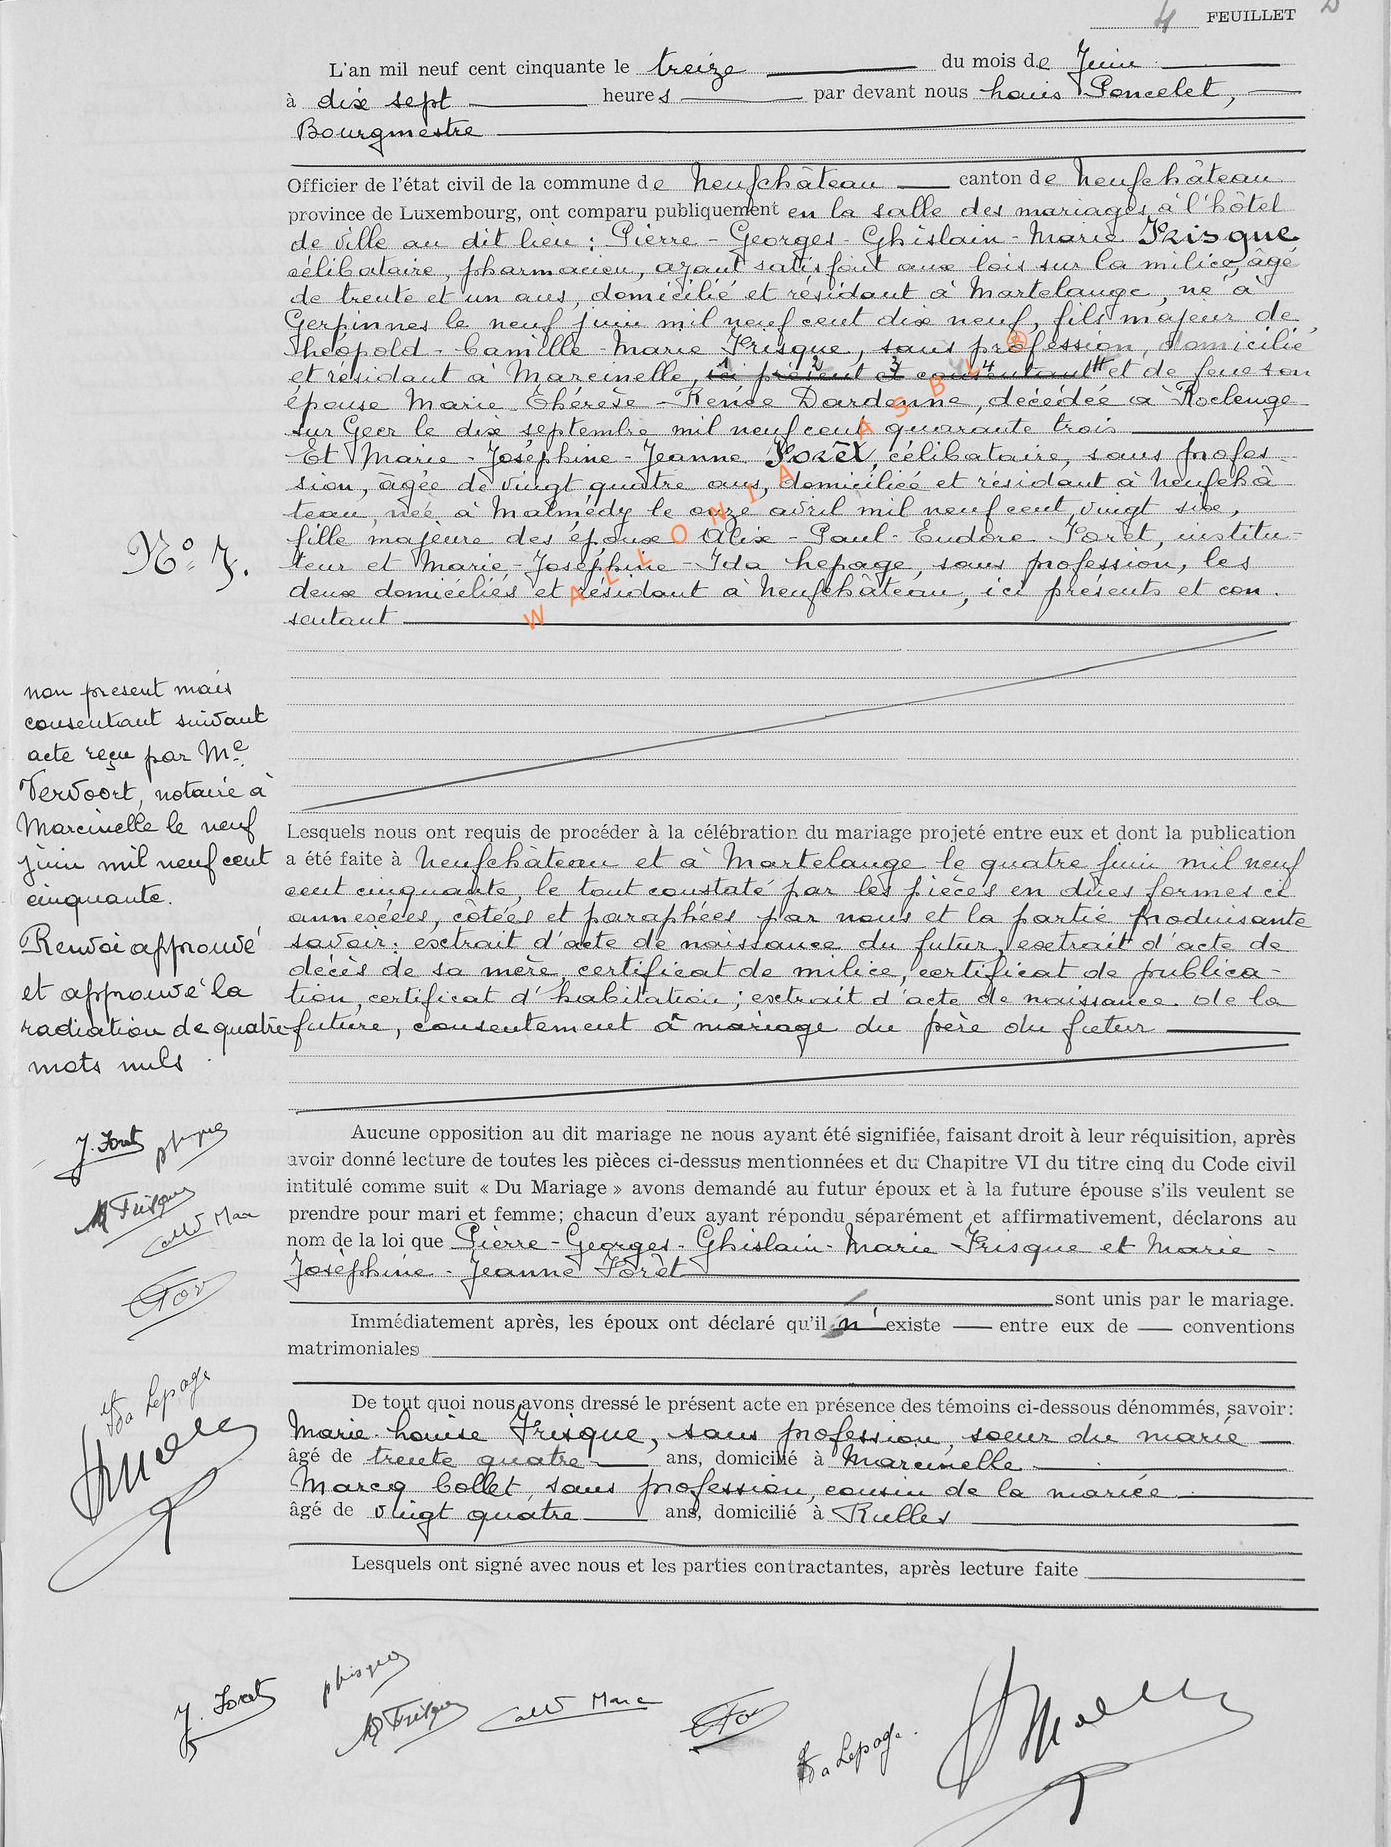 4 FEUILLET
L'an mil neuf cent cinquante le treize du mois de Juin
à dix sept heures par devant nous Louis Poncelet,
Bourgmestre
Officier de l'état civil de la commune de Neufchâteau canton de Neufchâteau
province de Luxembourg, ont comparu publiquement en la salle des mariages à l'hôtel
de ville au dit lieu : Pierre - Georges - Ghislain - Marie Frisque
célibataire, pharmacien, ayant satisfait aux lois sur la milice, âgé
de trente et un ans, domicilié et résidant à Martelange, né à
Gerpinnes le neuf juin mil neuf cent dix neuf, fils majeur de
Théopold - Camille - Marie Frisque, sans profession, domicilié
et résidant à Marcinelle, ici présent et consentant et de feue son
épouse Marie - Thérèse - Renée Dardenne, décédée à Roclenge
sur Geer le dix septembre mil neuf cent quarante trois
Et Marie - Joséphine - Jeanne Forêt, célibataire, sans profes-
sion, âgée de vingt quatre ans, domiciliée et résidant à Neufchâ-
teau, née à Malmédy le onze avril mil neuf cent vingt six,
fille majeure des époux Alix - Paul - Eudore Forêt, institu-
teur et Marie - Joséphine - Ida Lepage, sans profession, les
deux domiciliés et résidant à Neufchâteau, ici présents et con-
sentant
WALLONIA ASBL ®
No 7.
non présent mais
consentant suivant
acte reçu par Me
Vervoort, notaire à
Marcinelle le neuf
juin mil neuf cent
cinquante.
Renvoi approuvé
et approuvé la
radiation de quatre
mots nuls
Lesquels nous ont requis de procéder à la célébration du mariage projeté entre eux et dont la publication
a été faite à Neufchâteau et à Martelange le quatre juin mil neuf
cent cinquante, le tout constaté par les pièces en dûes formes ci
annexées, côtées et paraphées par nous et la partie produisante
savoir: extrait d'acte de naissance du futur, extrait d'acte de
décès de sa mère, certificat de milice, certificat de publica-
tion, certificat d'habitation ; extrait d'acte de naissance de la
future, consentement à mariage du père du futur
Aucune opposition au dit mariage ne nous ayant été signifiée, faisant droit à leur réquisition, après
avoir donné lecture de toutes les pièces ci-dessus mentionnées et du Chapitre VI du titre cinq du Code civil
intitulé comme suit « Du Mariage » avons demandé au futur époux et à la future épouse s'ils veulent se
prendre pour mari et femme; chacun d'eux ayant répondu séparément et affirmativement, déclarons au
nom de la loi que Pierre - Georges - Ghislain - Marie Frisque et Marie -
Joséphine - Jeanne Forêt
sont unis par le mariage.
Immédiatement après, les époux ont déclaré qu'il n'existe entre eux de conventions
matrimoniales
De tout quoi nous avons dressé le présent acte en présence des témoins ci-dessous dénommés, savoir:
Marie Louise Frisque, sans profession, soeur du marié
âgé de trente quatre ans, domicilié à Marcinelle
Marcq Collet, sans profession, cousin de la mariée
âgé de vingt quatre ans, domicilié à Rulles
Lesquels ont signé avec nous et les parties contractantes, après lecture faite
J. Foret
M Frisque
Ida Lepage
J. Foret
M Frisque
Ida Lepage.